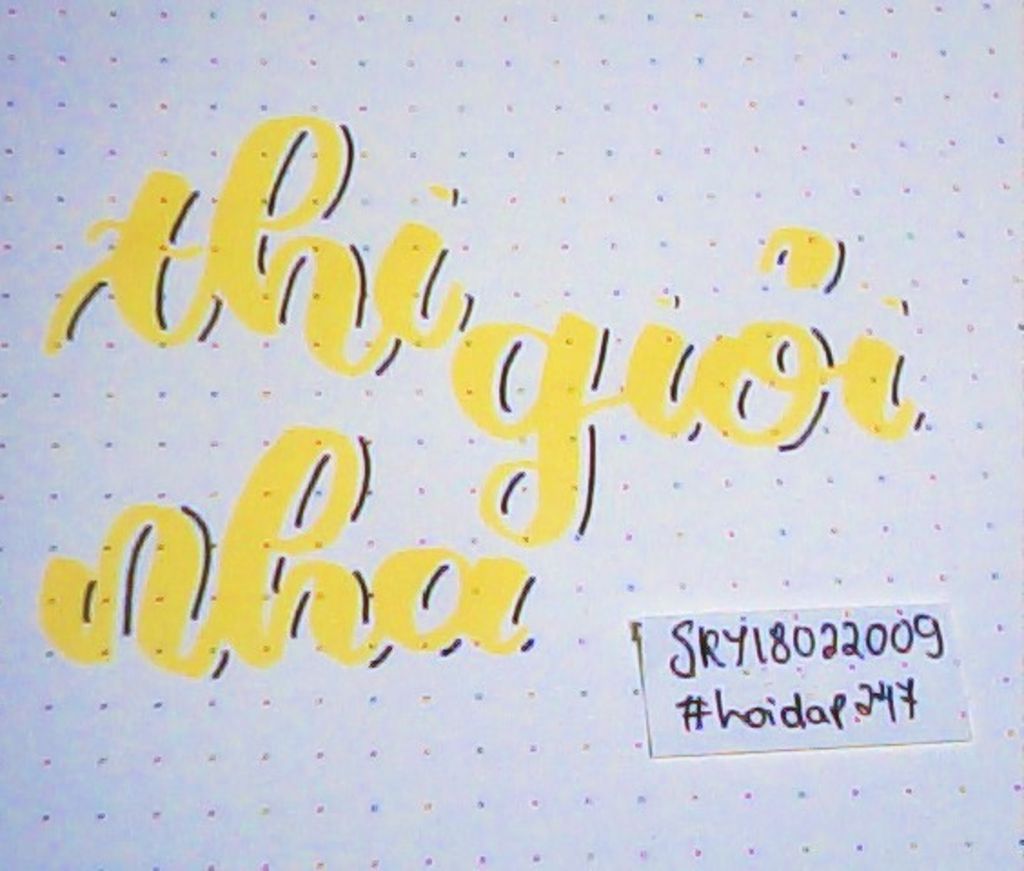 thi giỏi
nha
SRY18022009
#hoidap247